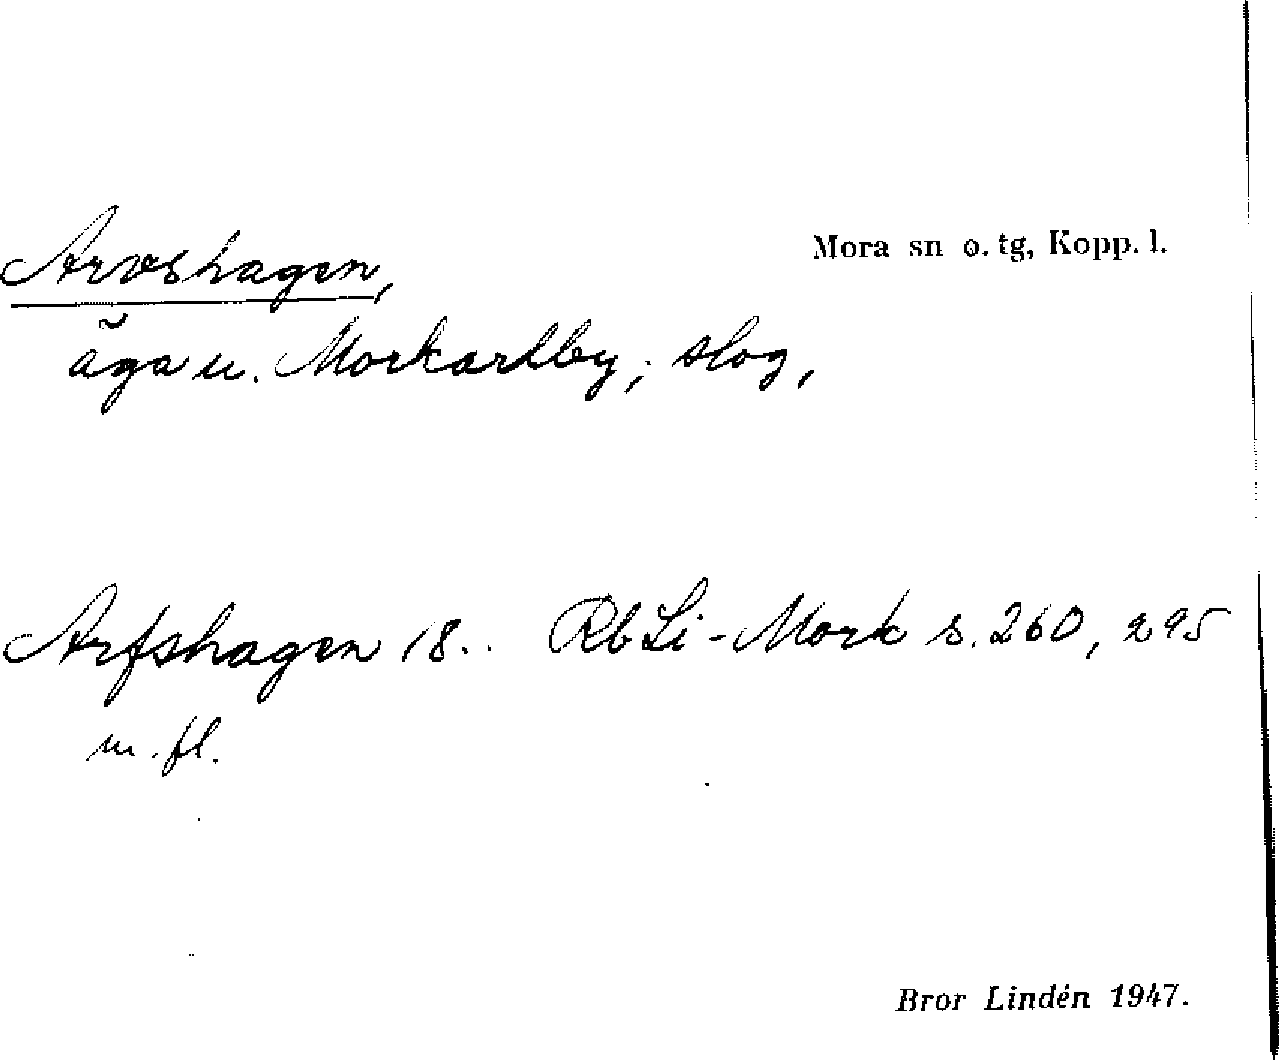 Arvshagen,
Mora sn o. tg, Kopp. l.
äga u. Morkarlby; slog,
Arfshagen 18.. Rb Li-Mork s. 260, 295
m. fl.
Bror Lindén 1947.